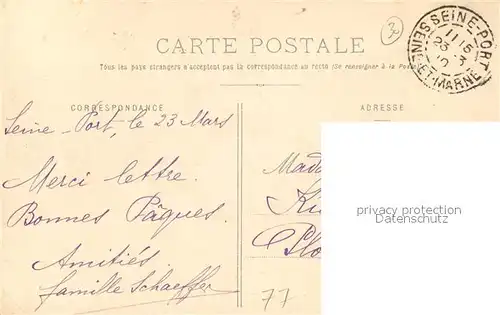 30
CARTE POSTALE
SEINE-PORT
SEINE-ET-MARNE
11 15
23 - 3
Tous les pays étrangers n'acceptent pas la correspondance au recto (Se renseigner à la Poste)
CORRESPONDANCE
ADRESSE
Seine-Port, le 23 Mars
Merci lettre.
Bonnes Pâques.
Amitiés
famille Schaeffer
Mada
privacy protection
Datenschutz
77